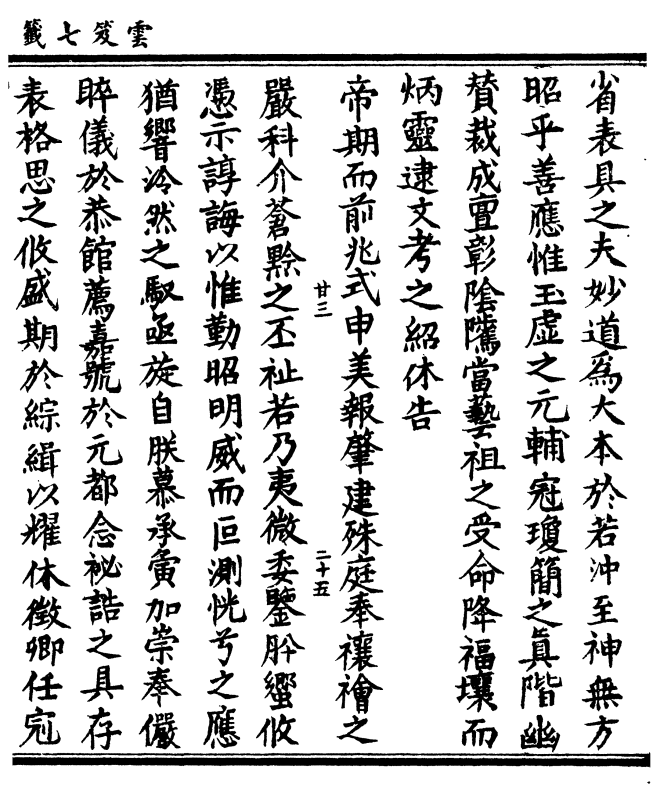 雲笈七籤
省表具之夫妙道為大本於若沖至神無方
昭乎善應惟玉虛之元輔冠瓊簡之真階幽
賛裁成亶彰陰隲當藝祖之受命降福壤而
炳靈逮文考之紹休告
帝期而前兆式申美報肇建殊庭奉禳禬之
嚴科介蒼黔之丕祉若乃夷微委鑒肸蠁攸
憑示諄誨以惟勤昭明威而叵測恍兮之應
猶響泠然之馭亟旋自朕慕承夤加崇奉儼
睟儀於恭館薦嘉號於元都念祕誥之具存
表格思之攸盛期於綜緝以耀休徵卿任㝌
廿三
二十五